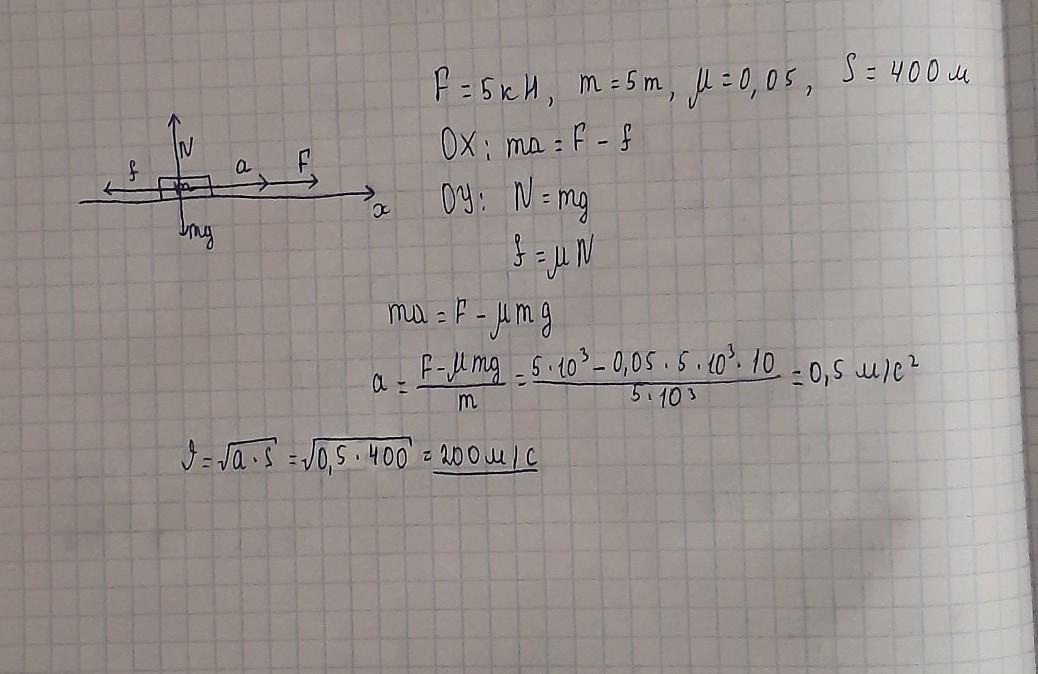 F = 5кН, m = 5т, μ = 0,05, S = 400 м
OX: ma = F - f
OY: N = mg
f = μN
N
f a F
mg x
ma = F - μmg
a = (F - μmg)/m = (5·10³ - 0,05·5·10³·10)/(5·10³) = 0,5 м/с²
υ = √(a·s) = √(0,5·400) = 200 м/с